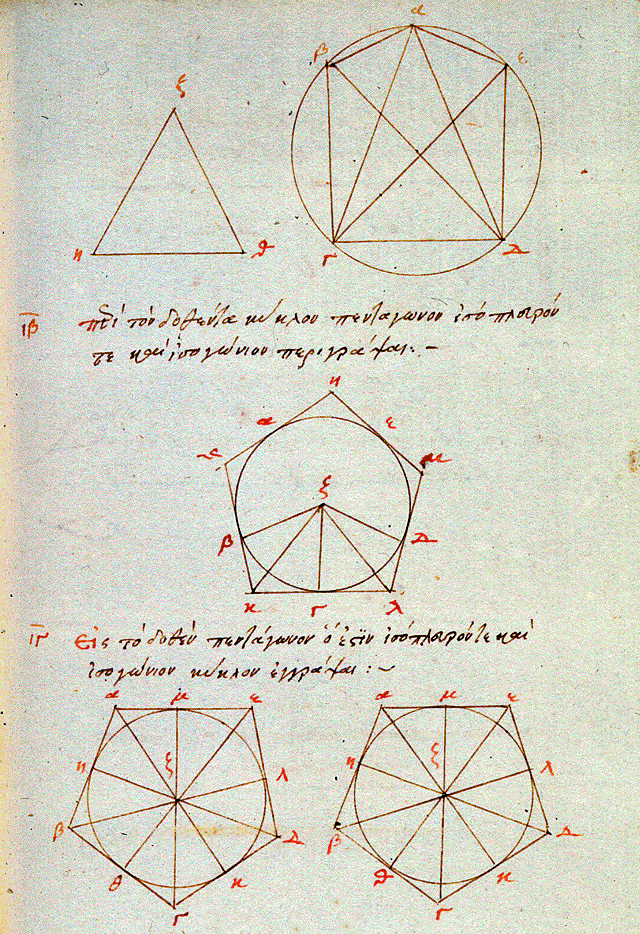 α
β ε
ξ
η θ
Γ Δ
ιβ περὶ τὸν δοθέντα κύκλον πεντάγωνον ἰσόπλευρόν
τε καὶ ἰσογώνιον περιγράψαι:-
η
α ε
μ
ξ
β Δ
κ Γ λ
ιγ Εἰς τὸ δοθὲν πεντάγωνον ὅ ἐστιν ἰσόπλευρόν τε καὶ
ἰσογώνιον κύκλον ἐγγράψαι:~
α μ ε α μ ε
η ξ λ η ξ λ
β Δ β Δ
θ κ θ κ
Γ Γ